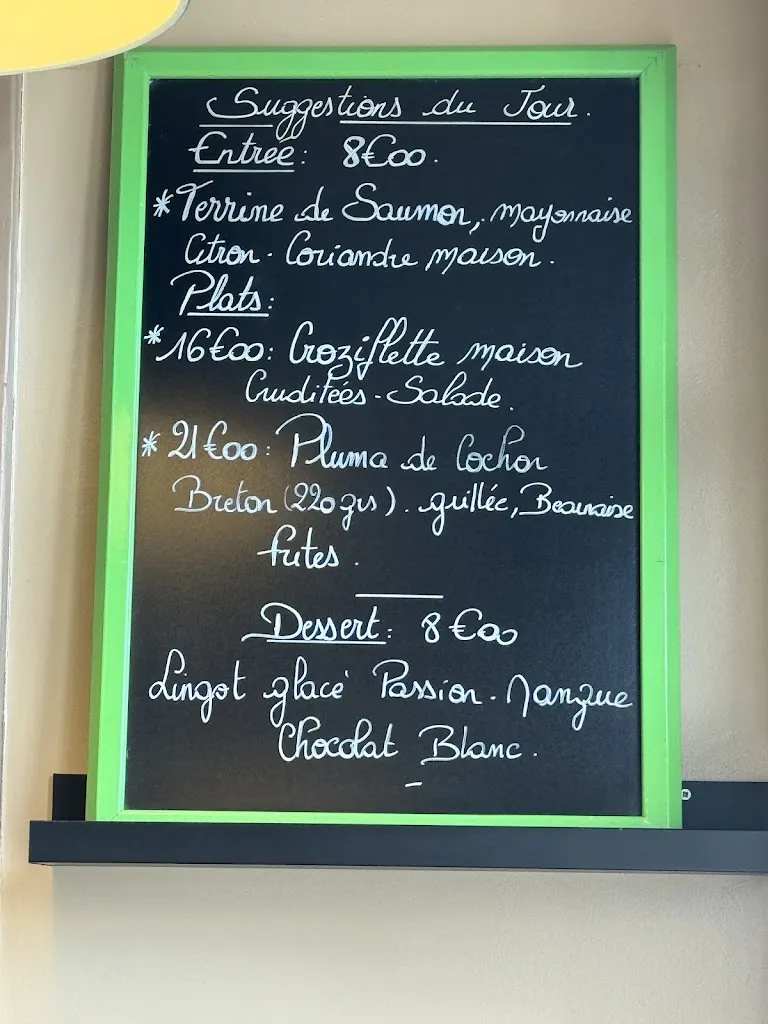 Suggestions du Jour.
Entrée: 8€00.
*Terrine de Saumon, mayonnaise
Citron. Coriandre maison.
Plats:
*16€00: Croziflette maison
Cruditeés - Salade.
*21€00: Pluma de Cochon
Breton (220grs). grillée, Bearnaise
frites.
Dessert: 8€00
Lingot glacé Passion. Mangue
Chocolat Blanc.